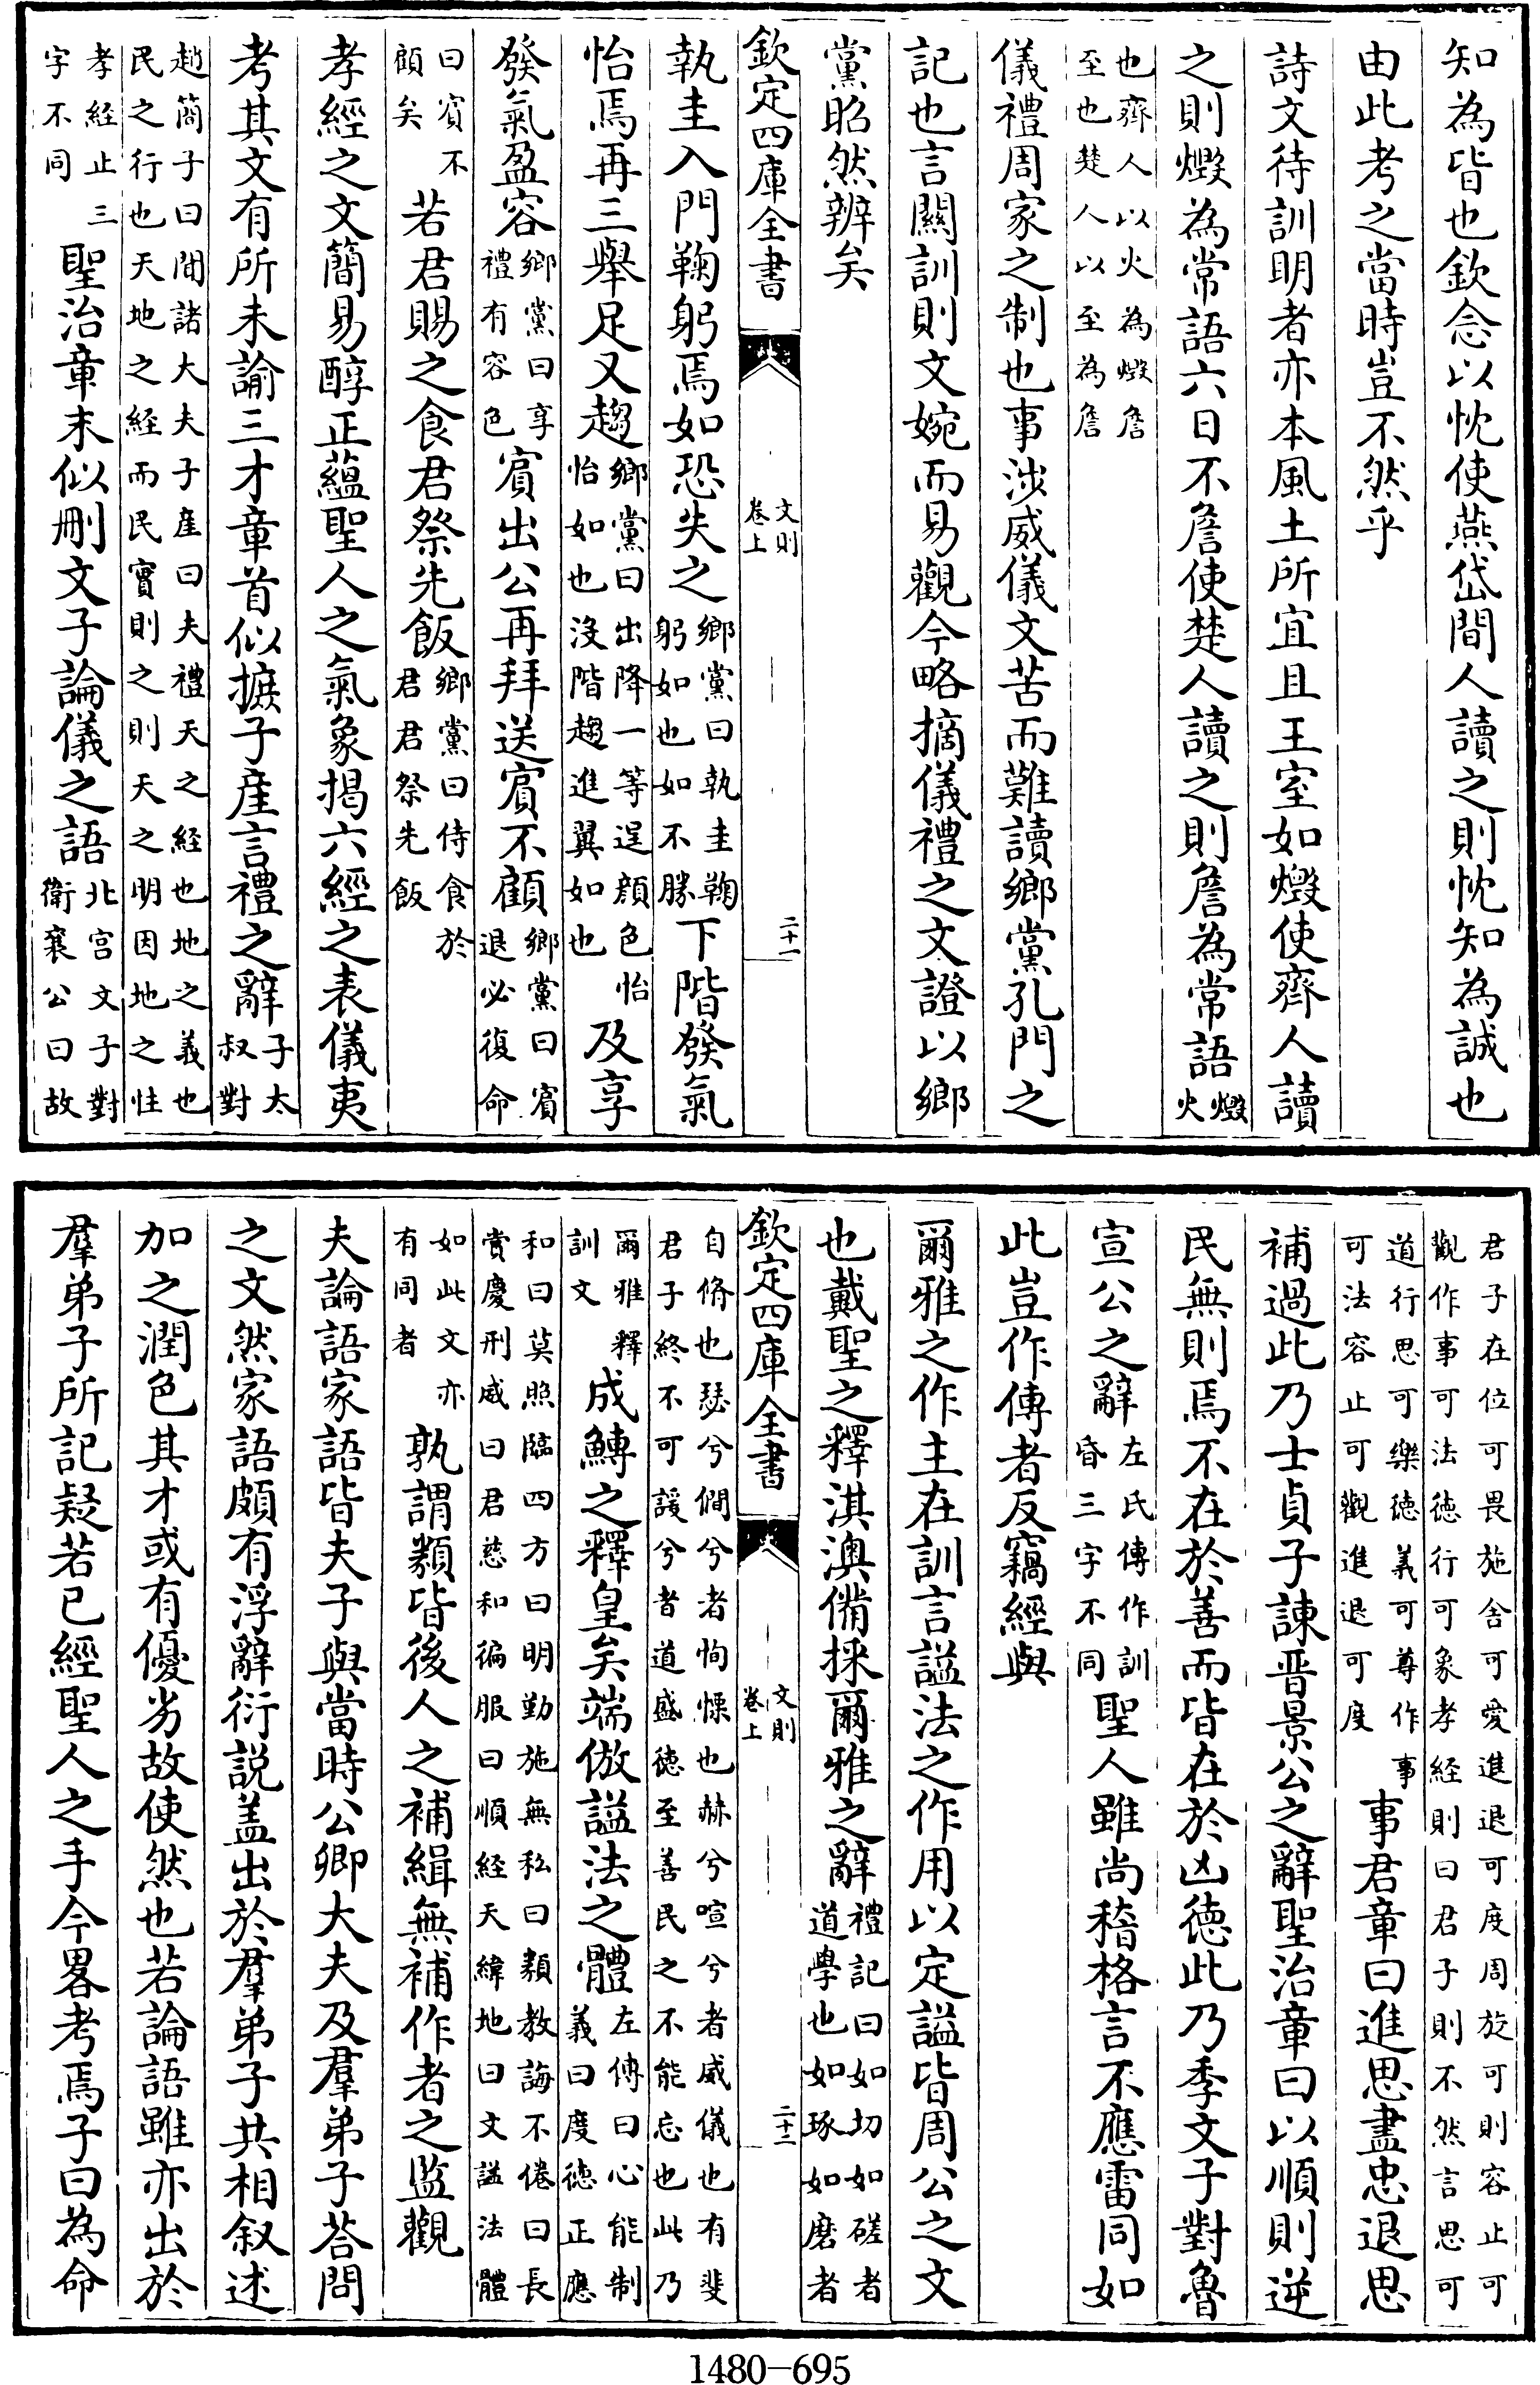 知為皆也欽念以忱使燕岱間人讀之則忱知為誠也
由此考之當時豈不然乎
詩文待訓明者亦本風土所宜且王室如燬使齊人讀
之則燬為常語六日不詹使楚人讀之則詹為常語燬火
也齊人以火為燬詹
至也楚人以至為詹
儀禮周家之制也事涉威儀文苦而難讀鄉黨孔門之
記也言關訓則文婉而易觀今略摘儀禮之文證以鄉
黨昭然辨矣
欽定四庫全書
文則
卷上
二十一
執圭入門鞠躬焉如恐失之鄉黨曰執圭鞠躬如也如不勝下階發氣
怡焉再三舉足又趨鄉黨曰出降一等逞顔色怡怡如也沒階趨進翼如也及享
發氣盈容鄉黨曰享禮有容色賔出公再拜送賔不顧鄉黨曰賔退必復命
曰賔不顧矣若君賜之食君祭先飯鄉黨曰侍食於君君祭先飯
孝經之文簡易醇正蘊聖人之氣象揭六經之表儀夷
考其文有所未諭三才章首似摭子產言禮之辭子太叔對
趙簡子曰聞諸大夫子產曰夫禮天之經也地之義也
民之行也天地之經而民實則之則天之明因地之性
孝經止三字不同聖治章末似刪文子論儀之語北宮文子對衛襄公曰故
君子在位可畏施舍可愛進退可度周旋可則容止可
觀作事可法徳行可象孝經則曰君子則不然言思可
道行思可樂徳義可尊作事可法容止可觀進退可度事君章曰進思盡忠退思
補過此乃士貞子諫晋景公之辭聖治章曰以順則逆
民無則焉不在於善而皆在於凶徳此乃季文子對魯
宣公之辭左氏傳作訓昏三字不同聖人雖尚稽格言不應雷同如
此豈作傳者反竊經與
爾雅之作主在訓言謚法之作用以定謚皆周公之文
也戴聖之釋淇澳備採爾雅之辭禮記曰如切如磋者道學也如琢如磨者
欽定四庫全書
文則
卷上
二十二
自脩也瑟兮僴兮者恂慄也赫兮喧兮者威儀也有斐
君子終不可諼兮者道盛徳至善民之不能忘也此乃
爾雅釋訓文成鱄之釋皇矣端倣謚法之體左傳曰心能制義曰度徳正應
和曰莫照臨四方曰明勤施無私曰類教誨不倦曰長
賞慶刑威曰君慈和徧服曰順經天緯地曰文謚法體
如此文亦有同者孰謂纇皆後人之補緝無補作者之監觀
夫論語家語皆夫子與當時公卿大夫及羣弟子荅問
之文然家語頗有浮辭衍說盖出於羣弟子共相叙述
加之潤色其才或有優劣故使然也若論語雖亦出於
羣弟子所記疑若已經聖人之手今畧考焉子曰為命
1480-695